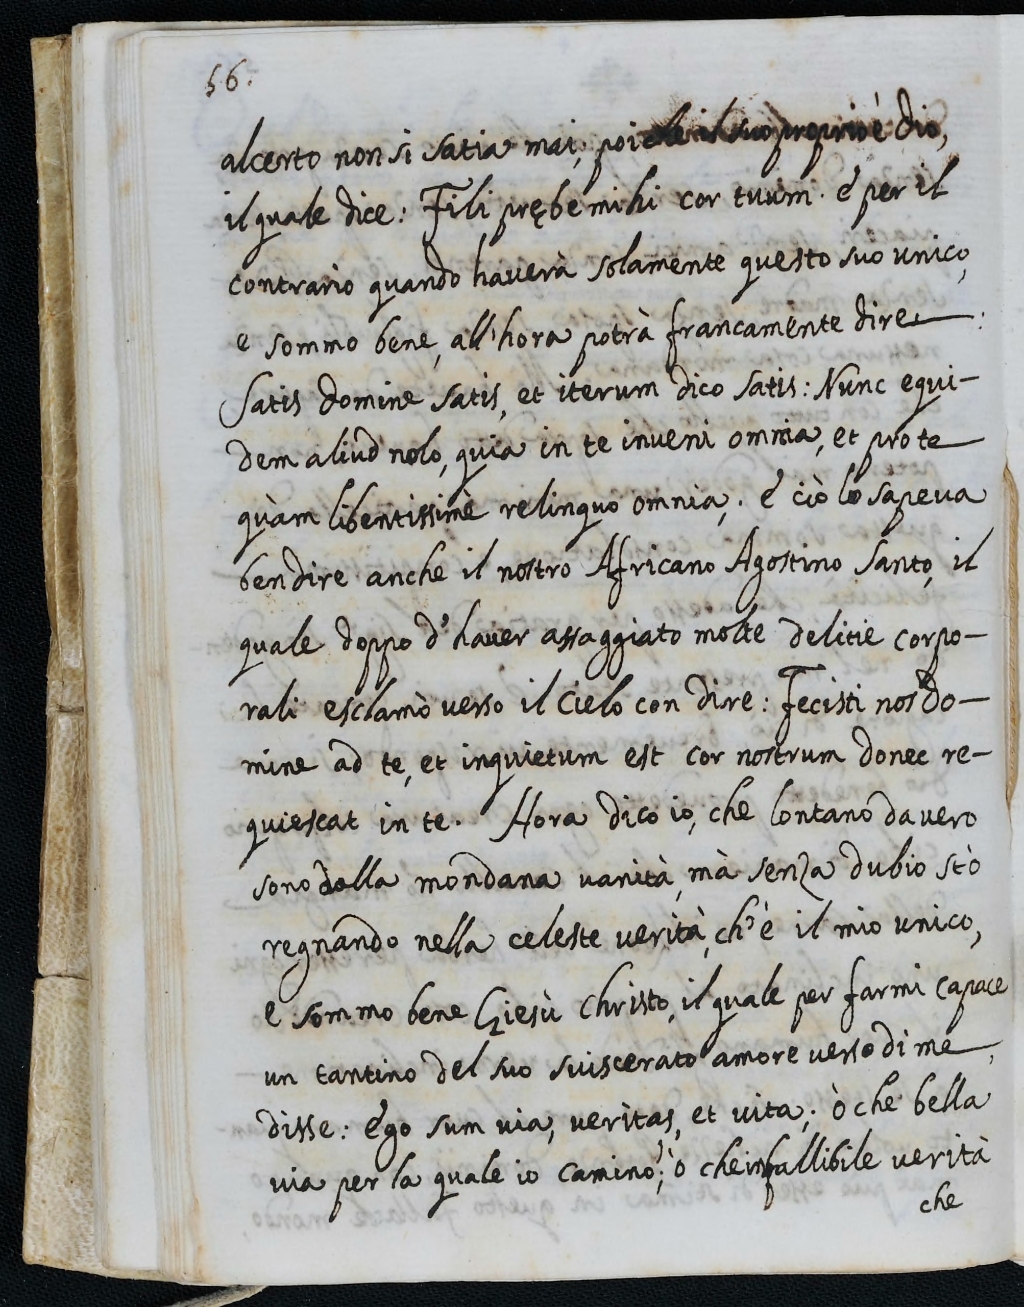 56.
alcerto non si satia mai, poiche il suo proprio è dio,
il quale dice: Fili prębe mihi cor tuum. é per il
contrario quando haverà solamente questo suo unico,
e sommo bene, all'hora potrà francamente dire :
Satis domine satis, et iterum dico satis: Nunc equi-
dem aliud nolo, quia in te inveni omnia, et pro te
quàm libentissimè relinquo omnia,. é ciò lo sapeua
ben dire anche il nostro Africano Agostino Santo, il
quale doppo d'hauer assaggiato molte delitie corpo-
rali esclamò uerso il Cielo con dire: Fecisti nos Do-
mine ad te, et inquietum est cor nostrum donec re-
quiescat in te. Hora dico io, che lontano da uero
sono dalla mondana uanità, mà senza dubio stò
regnando nella celeste uerità, ch'è il mio unico,
e sommo bene Giesù Christo, il quale per farmi capace
un tantino del suo suiscerato amore uerso di me,
disse: égo sum uia, ueritas, et uita,. ò che bella
uia per la quale io camino; ò che infallibile uerità
che